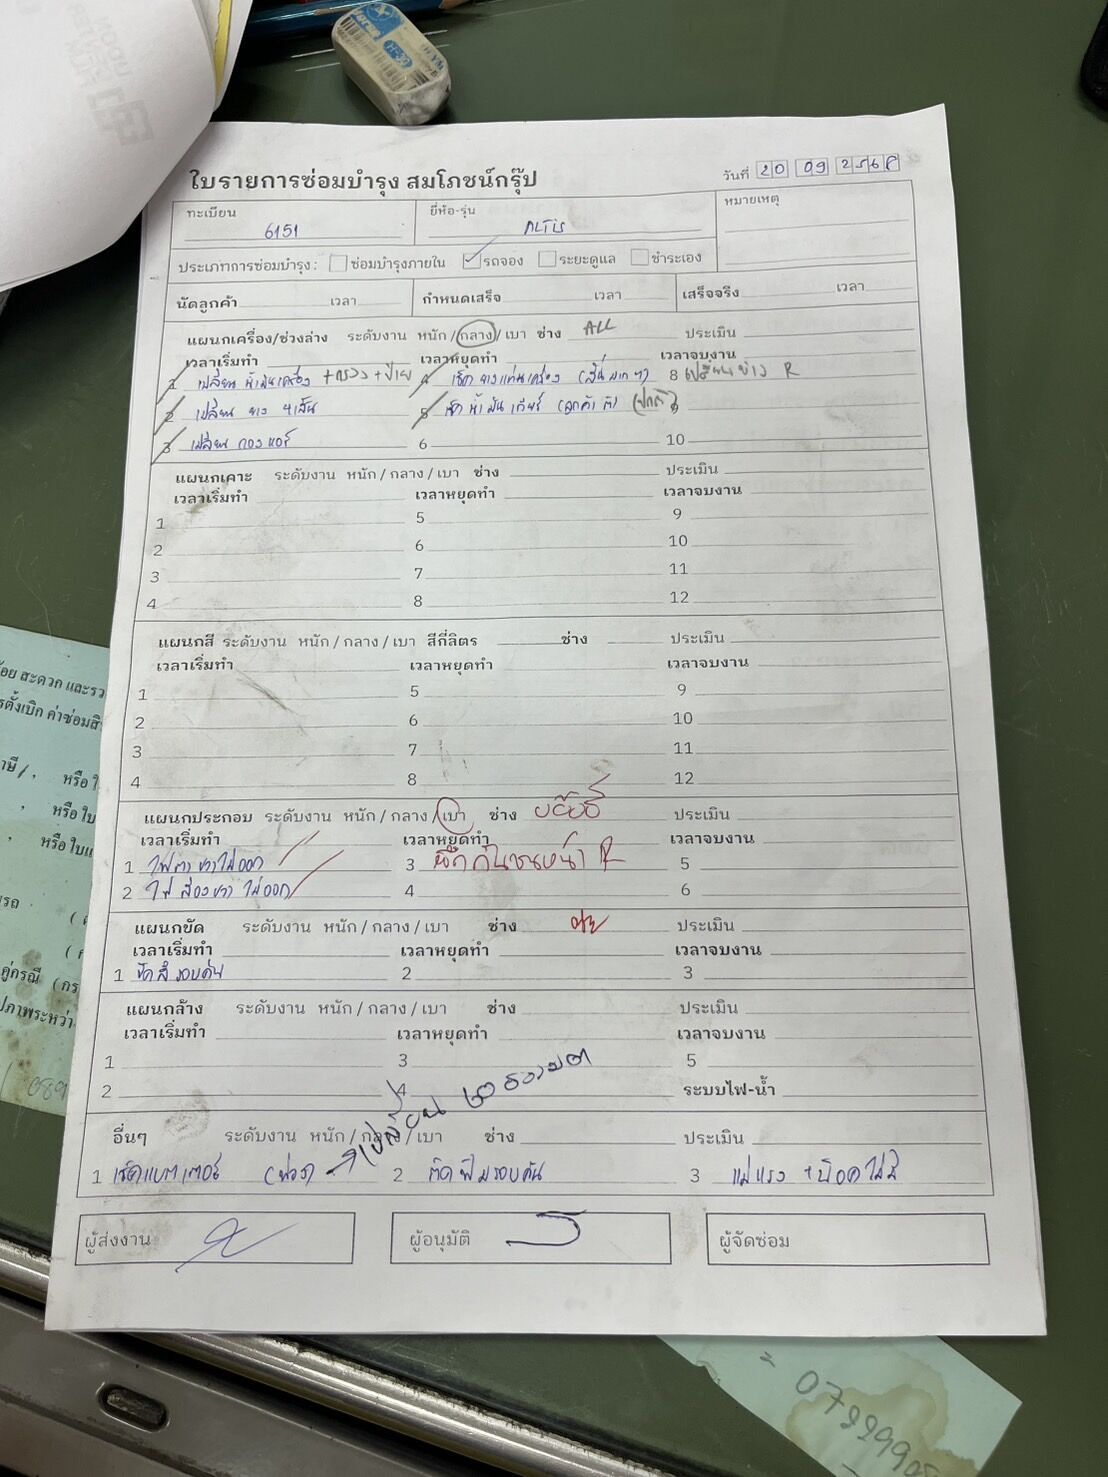 ใบรายการซ่อมบำรุง สมโภชน์กรุ๊ป
วันที่ 20 09 2568
ทะเบียน 6151 ยี่ห้อ-รุ่น ALTIS หมายเหตุ
ประเภทการซ่อมบำรุง : ซ่อมบำรุงภายใน รถจอง ระยะดูแล ชำระเอง
นัดลูกค้า เวลา กำหนดเสร็จ เวลา เสร็จจริง เวลา
แผนกเครื่อง/ช่วงล่าง ระดับงาน หนัก / กลาง / เบา ช่าง ALL ประเมิน
เวลาเริ่มทำ เวลาหยุดทำ เวลาจบงาน
1 เปลี่ยน น้ำมันเครื่อง +กรอง 4 เช็ค ยางแท่นเครื่อง (สั่นมากๆ) 8 เปลี่ยน R
2 เปลี่ยน ยาง 4 เส้น 5 เช็ค น้ำมันเกียร์ (ลูกค้า (ปกติ) 9
3 เปลี่ยน กรองแอร์ 6 10
แผนกเคาะ ระดับงาน หนัก / กลาง / เบา ช่าง ประเมิน
เวลาเริ่มทำ เวลาหยุดทำ เวลาจบงาน
1 5 9
2 6 10
3 7 11
4 8 12
แผนกสี ระดับงาน หนัก / กลาง / เบา สีกี่ลิตร ช่าง ประเมิน
เวลาเริ่มทำ เวลาหยุดทำ เวลาจบงาน
1 5 9
2 6 10
3 7 11
4 8 12
แผนกประกอบ ระดับงาน หนัก / กลาง / เบา ช่าง ประเมิน
เวลาเริ่มทำ เวลาหยุดทำ เวลาจบงาน
1 ไฟ ขวาไม่ออก 3 กันชนหน้า R 5
2 ไฟ ส่อง ขวา ไม่ออก 4 6
แผนกขัด ระดับงาน หนัก / กลาง / เบา ช่าง ประเมิน
เวลาเริ่มทำ เวลาหยุดทำ เวลาจบงาน
1 ขัดสีรอบคัน 2 3
แผนกล้าง ระดับงาน หนัก / กลาง / เบา ช่าง ประเมิน
เวลาเริ่มทำ เวลาหยุดทำ เวลาจบงาน
1 3 5
2 4 ระบบไฟ-น้ำ
อื่นๆ ระดับงาน หนัก / กลาง / เบา ช่าง ประเมิน
1 เช็คแบตเตอรี่ (พ่วง) → เปลี่ยน ธรรมดา 2 ติดฟิล์มรอบคัน 3 แม่แรง +บล็อค ไม่มี
ผู้ส่งงาน ผู้อนุมัติ ผู้จัดซ่อม